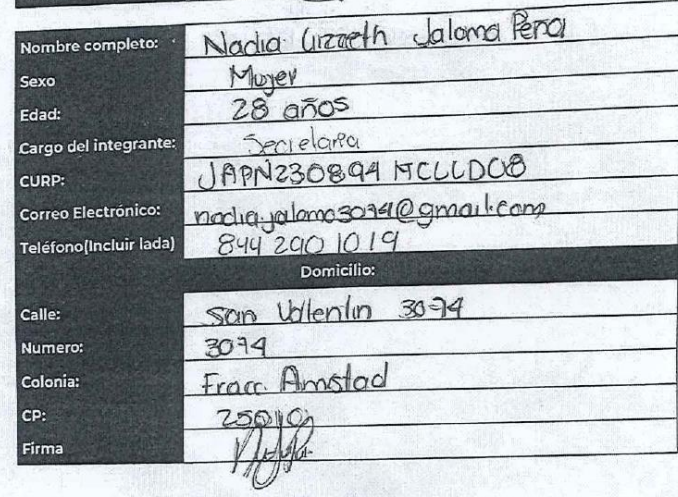 Nombre completo: Nadia Lizzeth Jaloma Peña
Sexo Mujer
Edad: 28 años
Cargo del integrante: Secretaria
CURP: JAPN230894 MCLLD08
Correo Electrónico: nadia.jaloma3074@gmail.com
Teléfono(Incluir lada) 844 290 10 19
Domicilio:
Calle: San Vallentin 3074
Numero: 3074
Colonia: Fracc. Amstad
CP: 25010
Firma